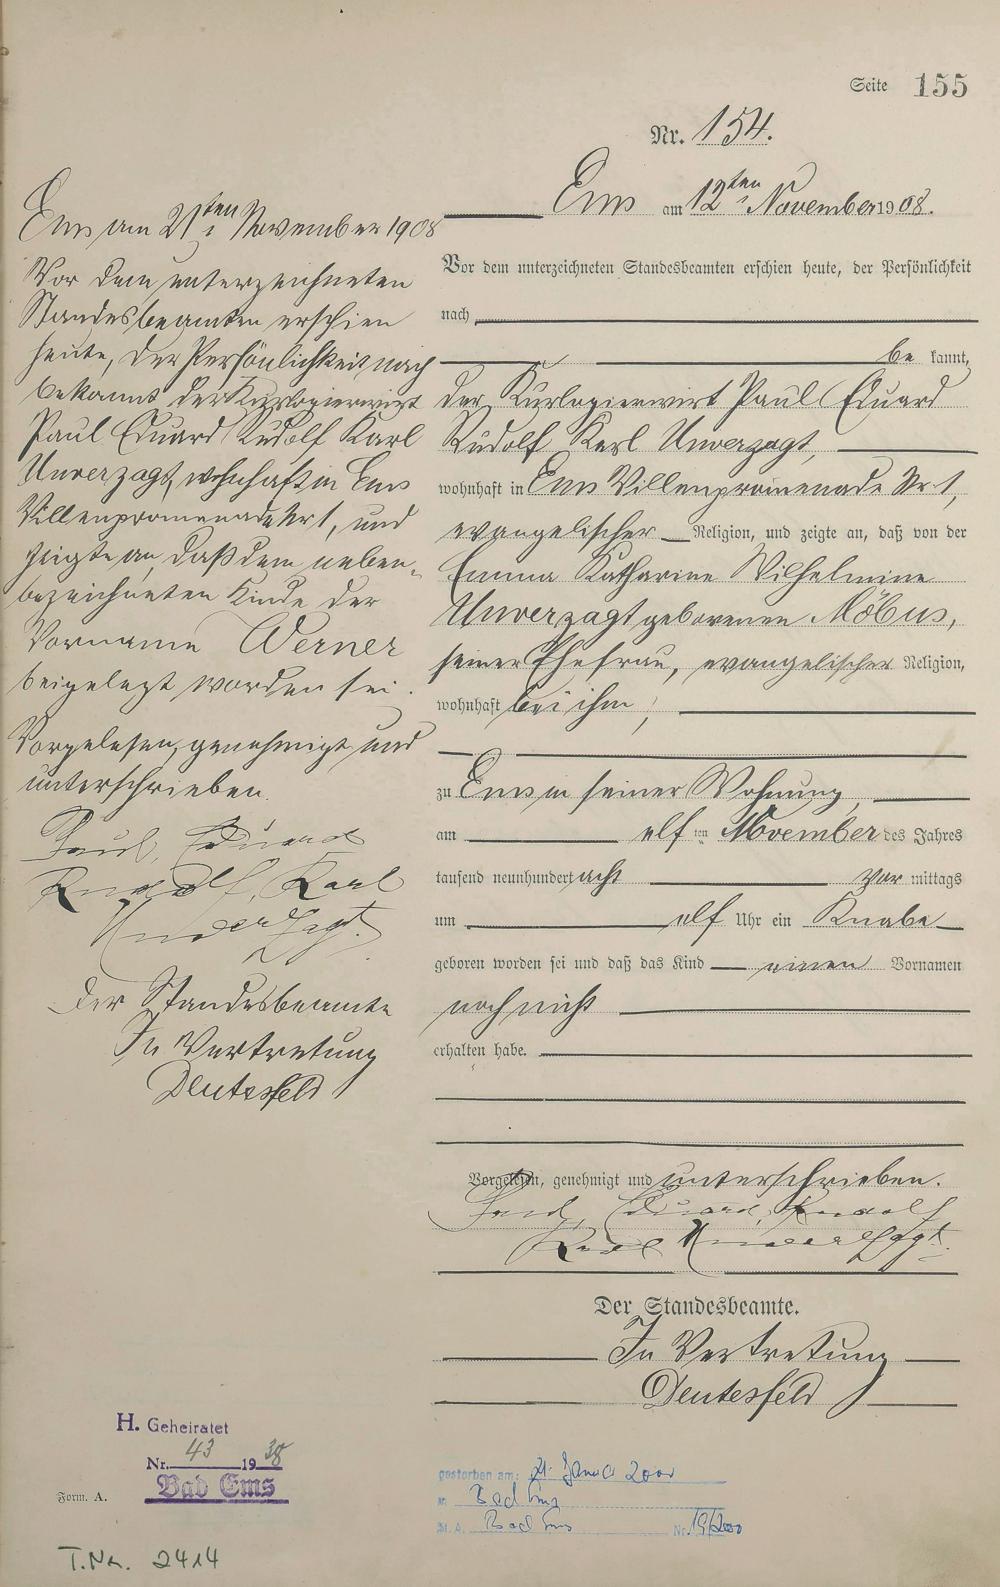 Seite 155
Nr. 154.
Ems am 12ten November 1908.
Vor dem unterzeichneten Standesbeamten erschien heute, der Persönlichkeit
nach
be kannt,
der Kurlogierwirt Paul Eduard
Rudolf Karl Unverzagt,
wohnhaft in Ems Villenpromenade Nr 1,
evangelischer Religion, und zeigte an, daß von der
Emma Katharine Wilhelmine
Unverzagt geborenen Möbus,
seiner Ehefrau, evangelischer Religion,
wohnhaft bei ihm,
zu Ems in seiner Wohnung,
am elf ten November des Jahres
tausend neunhundert acht vor mittags
um elf Uhr ein Knabe
geboren worden sei und daß das Kind einen Vornamen
noch nicht
erhalten habe.
Vorgelesen, genehmigt und unterschrieben.
Paul, Eduard, Rudolf
Karl Unverzagt.
Der Standesbeamte.
In Vertretung
Deutesfeld
Ems am 21ten November 1908
Vor dem unterzeichneten
Standesbeamten erschien
heute, der Persönlichkeit nach
bekannt der Kurlogierwirt
Paul Eduard Rudolf Karl
Unverzagt, wohnhaft in Ems
Villenpromenade Nr 1, und
zeigte an, daß dem neben-
bezeichneten Kinde der
Vorname Werner
beigelegt worden sei.
Vorgelesen, genehmigt und
unterschrieben.
Paul, Eduard
Rudolf, Karl
Unverzagt.
Der Standesbeamte
In Vertretung
Deutesfeld
H. Geheiratet
Nr. 43 1938
Bad Ems
Form. A.
T.Nr. 2414
gestorben am: 21. Januar 2000
in Bad Ems
St. A. Bad Ems Nr. 19/2000